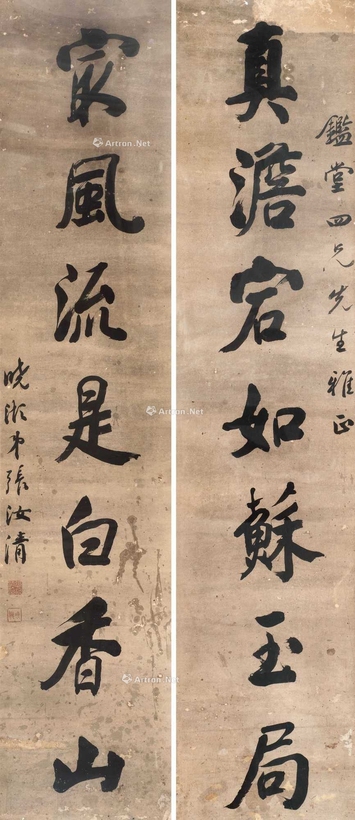 鑑堂四兄先生雅正
真澹宕如蘇玉局
㝡風流是白香山
曉湘弟張汝清
Artron.Net
Artron.Net
Artron.Net
Artron.Net